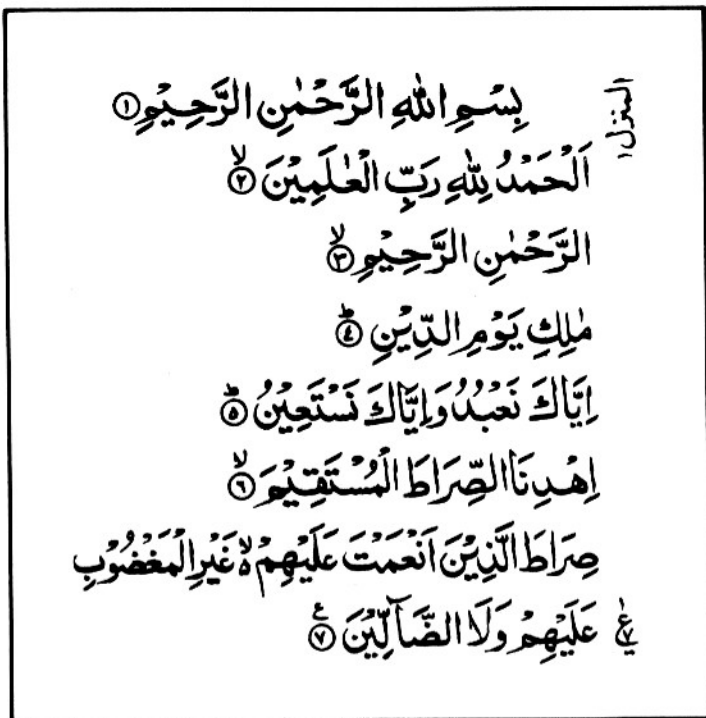 المنزل ١
بِسْمِ اللهِ الرَّحْمٰنِ الرَّحِيْمِ ①
اَلْحَمْدُ لِلّٰهِ رَبِّ الْعٰلَمِيْنَ ۙ②
الرَّحْمٰنِ الرَّحِيْمِ ۙ③
مٰلِكِ يَوْمِ الدِّيْنِ ؕ④
اِيَّاكَ نَعْبُدُ وَاِيَّاكَ نَسْتَعِيْنُ ؕ⑤
اِهْدِنَا الصِّرَاطَ الْمُسْتَقِيْمَ ۙ⑥
صِرَاطَ الَّذِيْنَ اَنْعَمْتَ عَلَيْهِمْ ۙ۬ غَيْرِ الْمَغْضُوْبِ
عَلَيْهِمْ وَلَا الضَّآلِّيْنَ ⑦ ع